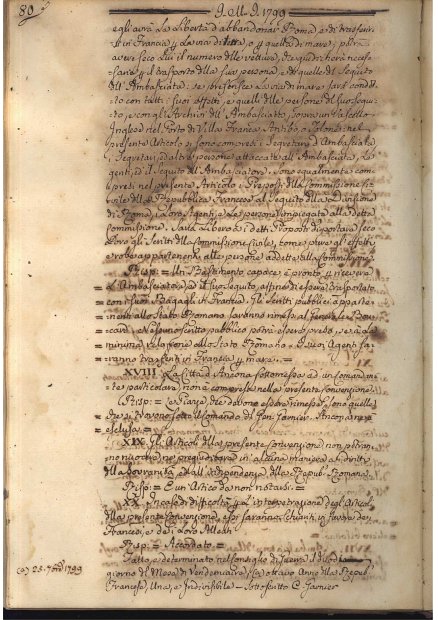 80
9. Ott. 9. 1799
egli avrà la libertà d'abbonar Roma, e di trasferirsi
in Francia per la via di terra, o per quella di mare; potrà
aver seco lui il numero delle vetture, che giudicherà neces-
sarie per il trasporto della sua persona, e di quelle del Seguito
dell'Ambasciata. Se preferisce la via di mare sarà condot-
to con tutti i suoi effetti, e quelli delle persone del suo segui-
to, e con gli Archivi dell'Ambasciata, sopra un Vascello
Inglese nel Porto di Villa Franca, Antibo, o Tolone: nel
presente Articolo si sono compresi i Segretarj d'Ambasciata,
Segretarj, ed altre persone attaccate all'Ambasciata, A-
genti, ed il Seguito dell'Ambasciatore. Sono egualmente com-
presi nel presente Articolo i Preposti della Commissione Ci-
vile della Repubblica Francese al Seguito della Divisione
di Roma, i loro Agenti, e le persone impiegate alla detta
Commissione. Sarà libero ai detti Preposti di portare seco
loro gli Scritti della Commissione Civile, come pure gli effetti,
e robe appartenenti alle persone addette alla Commissione.
Risp. = Un Bastimento capace è pronto per ricevere
l'Ambasciatore ed il suo seguito, affine di essere trasportato
con i suoi Bagagli in Francia. Gli Scritti pubblici apparte-
nenti allo Stato Romano saranno rimessi al Generale Bou-
card. Nessuno scritto pubblico potrà esser preso, se ha la
minima relazione allo Stato Romano. I suoi Agenti sa-
ranno trasferiti in Francia per mare. =
XVIII. La Città d'Ancona sottomessa ad un Coman-
te particolare, non è compresa nella presente Convenzione.
Risp. = Le Piazze, che devono essere rimesse sono quelle
che si trovano sotto il Comando del Gen. Garnier. Ancona ne è
esclusa. =
XIX. Gli Articoli della presente Convenzione non potran-
no nuocere, ne pregiudicare in alcuna maniera ai diritti
della Sovranità, ed all'indipendenza della Repub. Romana.
Risp. = È un Articolo da non trattarsi. =
XX. In caso di difficoltà per l'interpretazione degli Articoli
della presente Convenzione, essi saranno schiariti in favore dei
Francesi, e dei loro Alleati.
Risp. = Accordato. =
Fatto, e determinato nel Consiglio di Guerra il dì
giorno del Mese di Vendemiaire, (a) ottavo Anno della Repub.
Francese, Una, e Indivisibile = Sottoscritto G. Garnier
(a) 25. 7bre 1799